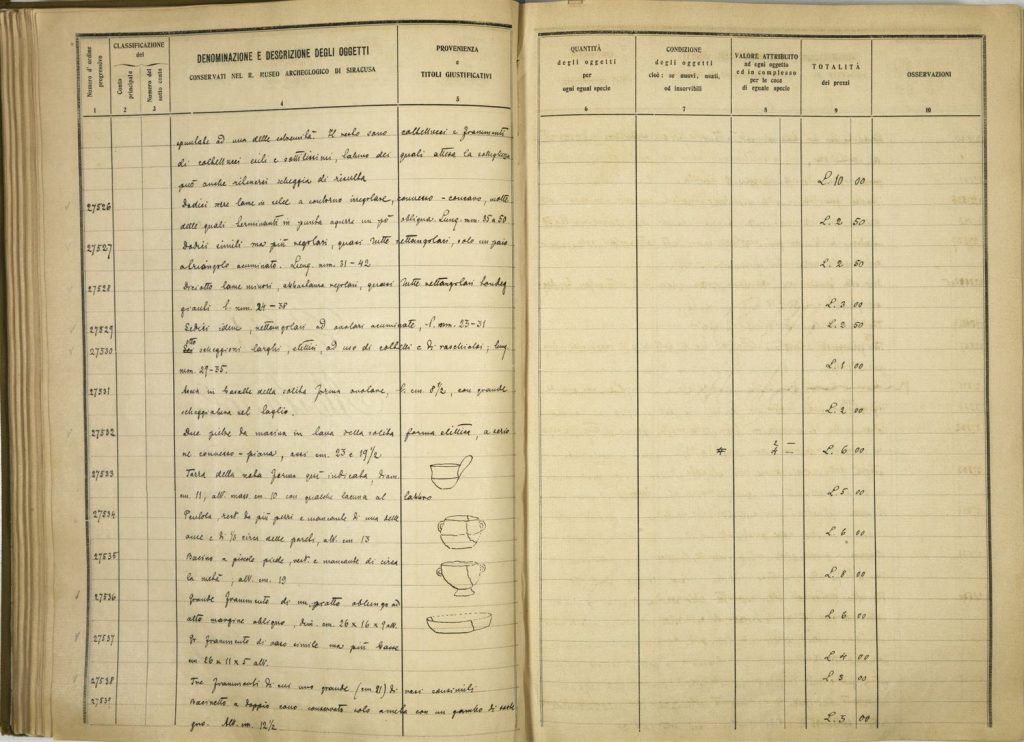 Numero d'ordine progressivo
CLASSIFICAZIONE
del
Conto principale
Numero del sotto conto
DENOMINAZIONE E DESCRIZIONE DEGLI OGGETTI
CONSERVATI NEL R. MUSEO ARCHEOLOGICO DI SIRACUSA
PROVENIENZA
e
TITOLI GIUSTIFICATIVI
1 2 3 4 5
QUANTITÀ
degli oggetti
per
ogni egual specie
CONDIZIONE
degli oggetti
cioè: se nuovi, usati,
od inservibili
VALORE ATTRIBUITO
ad ogni oggetto
ed in complesso
per le cose
di eguale specie
TOTALITÀ
dei prezzi
OSSERVAZIONI
6 7 8 9 10
spuntate ad una delle estremità. Il resto sono coltellucci e frammenti
di coltellucci esili e sottilissimi, taluno dei quali attesa la
può anche ritenersi scheggia di risulta L. 10 00
27526 Dodici vere lame in selce a contorno irregolare, convesso - concavo, molte
delle quali terminanti in punta un pò obliqua Lung. mm. 35 a 50 L. 2 50
27527 Dodici simili ma più regolari, quasi tutte rettangolari, solo un paio
a triangolo acuminato. Lung. mm. 31 - 42 L. 2 50
27528 Diciotto lame minori, abbastanza regolari, quasi tutte rettangolari
l. mm. 24 - 38 L. 3 00
27529 Sedici idem, rettangolari ad ovolari acuminate, l. mm. 23 - 31 L. 2 50
27530 Otto scheggioni larghi, ad uso di coltelli e di raschiatoi; lung.
mm. 29-35. L. 1 00
27531 in basalto della solita forma ovolare, l. cm. 8 1/2, con grande
scheggiatura nel taglio. L. 2 00
27532 Due pietre da macina in lava della solita forma ellittica, a sezio
ne convesso - piana, cm. 23 e 19 1/2 2 — 4 — L. 6 00
27533 Tazza della nota forma qui indicata, diam.
cm. 11, alt. mass. cm. 10 con qualche lacuna al labbro L. 5 00
27534 Pentola, rest. da più pezzi e mancante di una delle
anse e di circa delle pareti, alt. cm 13 L. 6 00
27535 Bacino a piccolo piede, rest. e mancante di circa
la metà, alt. cm. 19 L. 8 00
27536 Grande frammento di un piatto oblungo ad
alto margine obliquo, dim. cm. 26 x 16 x 9 alt. L. 6 00
27537 Gr. frammento di vaso simile ma più basso
cm. 26 x 11 x 5 alt. L. 4 00
27538 Tre frammenti di cui uno grande (cm 21) di vasi consimili L. 3 00
27539 Bacinetto a doppio cono conservato solo a metà con un gambo di soste
gno. Alt. cm. 12 1/2 L. 3 00